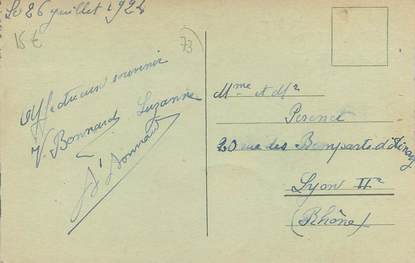 Le 26 juillet 1924
15 €
73
Affectueux souvenir
V. Bonnard Suzanne
Bonnard
Mme et Mr
Perenet
20 rue des Remparts d'Ainay
Lyon IIe
(Rhône)